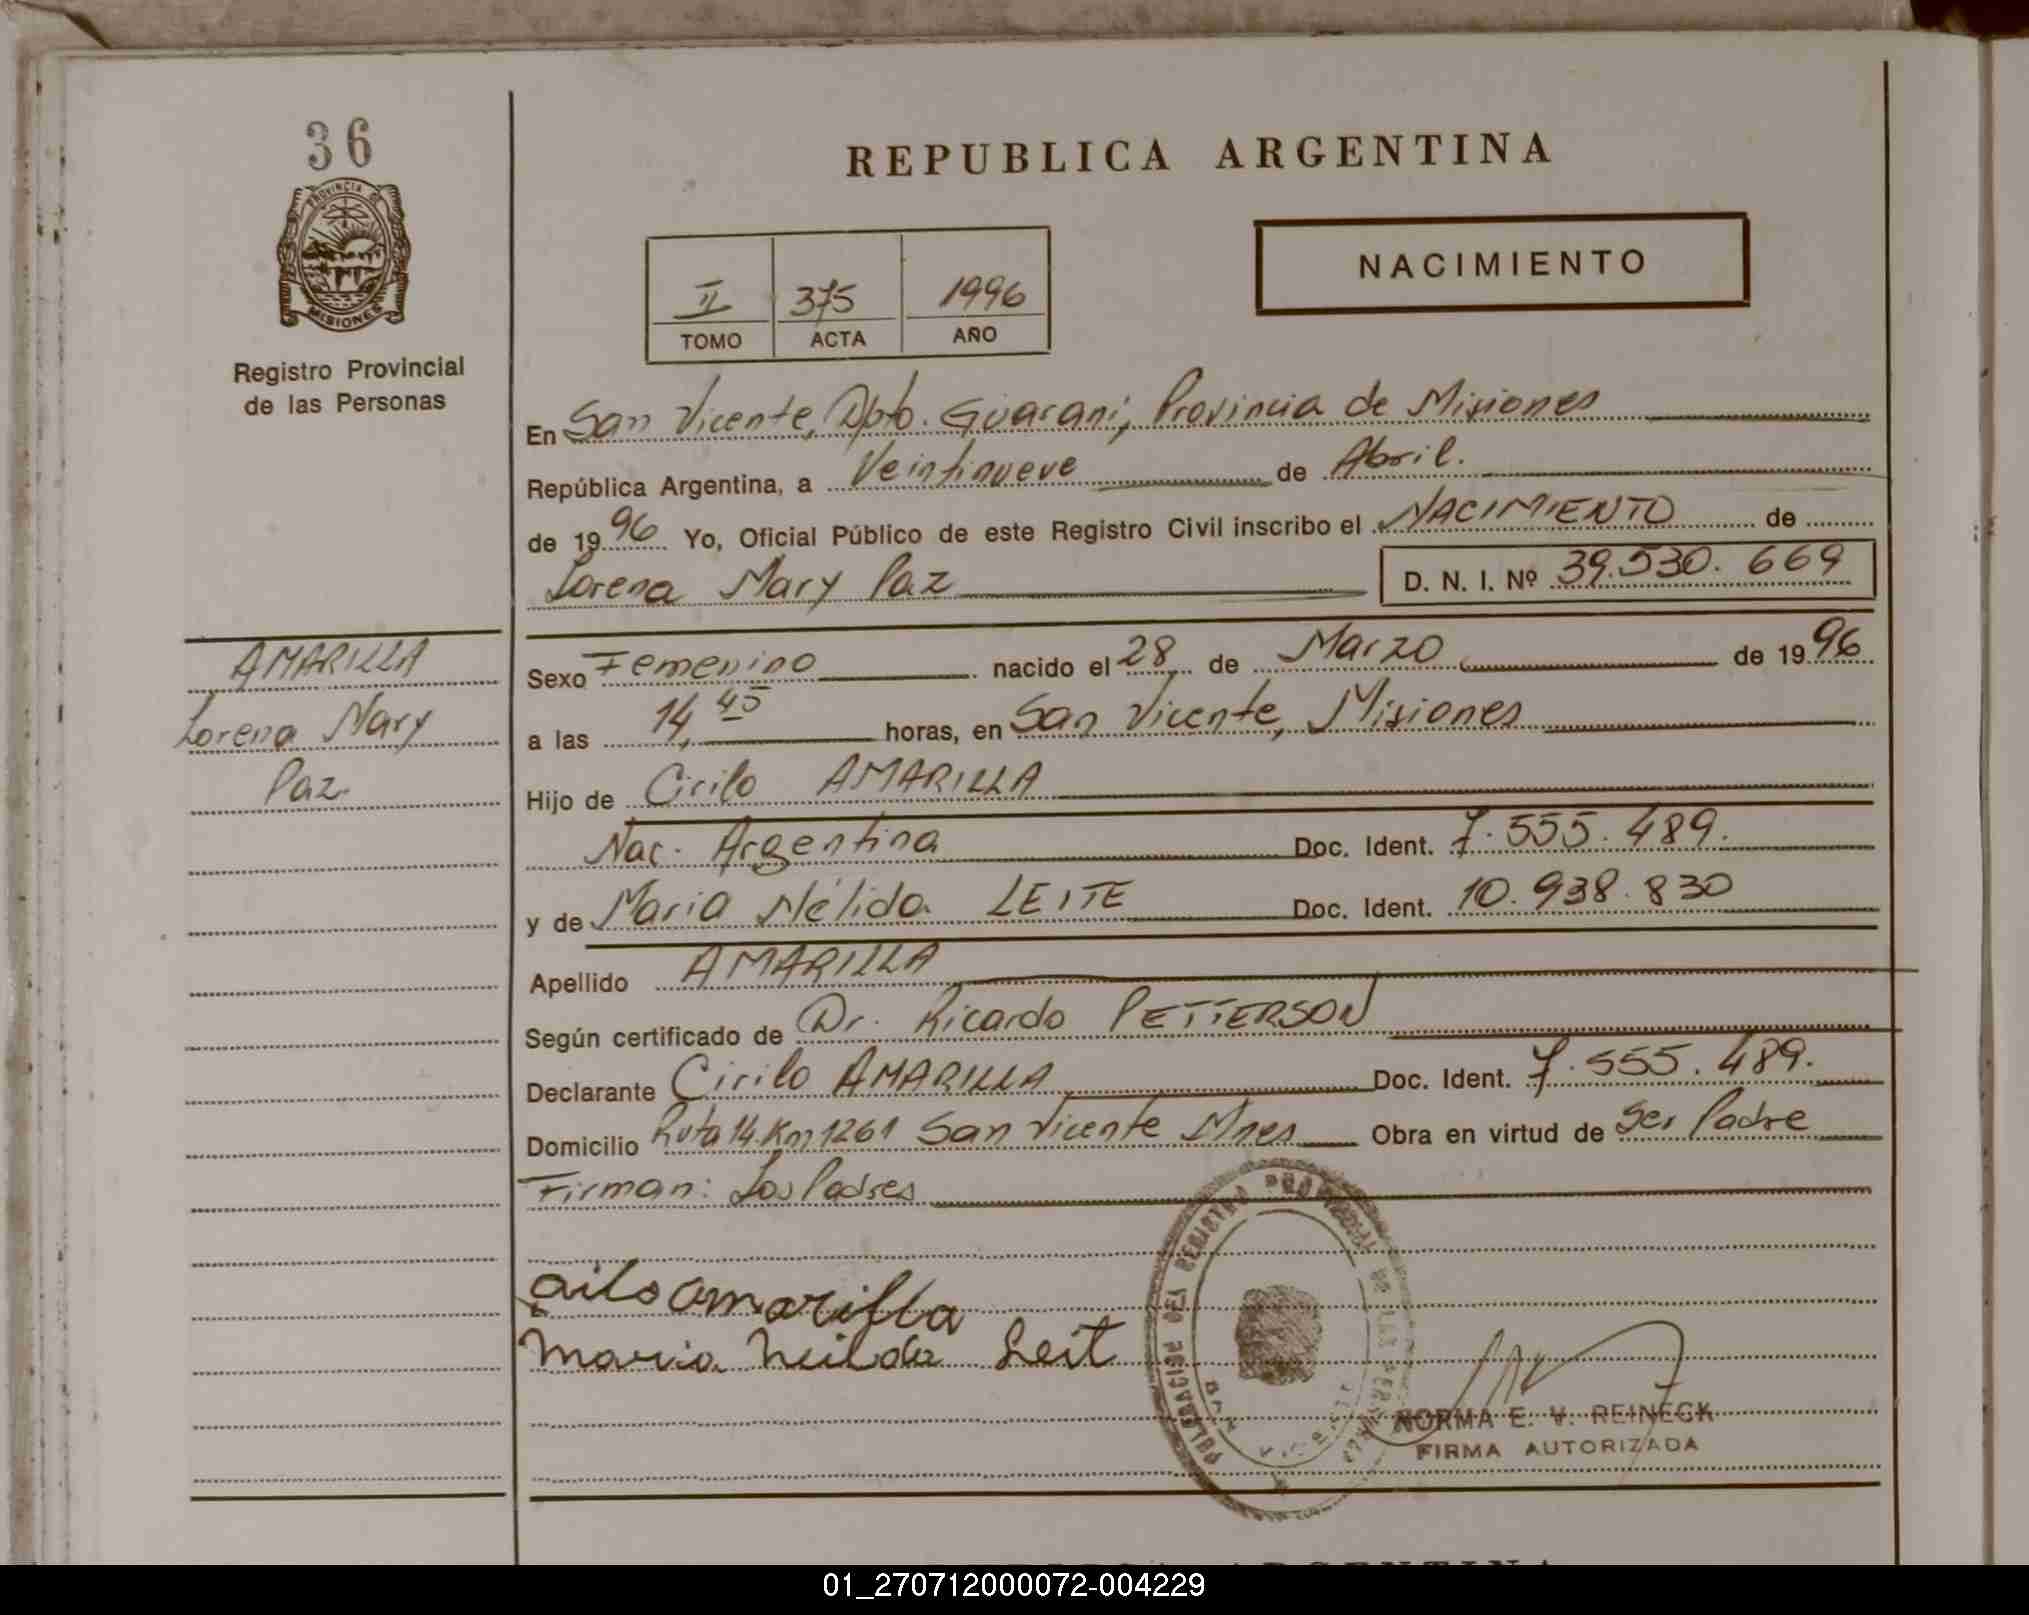 36
PROVINCIA DE
MISIONES
Registro Provincial
de las Personas
REPUBLICA ARGENTINA
NACIMIENTO
II 375 1996
TOMO ACTA AÑO
En San Vicente, Dpto. Guaraní, Provincia de Misiones
República Argentina, a Veintinueve de Abril.
de 1996 Yo, Oficial Público de este Registro Civil inscribo el NACIMIENTO de
Lorena Mary Paz D. N. I. Nº 39.530.669
AMARILLA
Lorena Mary
Paz.
Sexo Femenino nacido el 28 de Marzo de 1996
a las 14,45 horas, en San Vicente, Misiones
Hijo de Cirilo AMARILLA
Nac. Argentina Doc. Ident. 7.555.489.
y de Maria Nélida LEITE Doc. Ident. 10.938.830
Apellido AMARILLA
Según certificado de Dr. Ricardo PETTERSON
Declarante Cirilo AMARILLA Doc. Ident. 7.555.489.
Domicilio Ruta 14 Km 1261 San Vicente Mnes Obra en virtud de Ser Padre
Firman: Los Padres
amarilla
maria Leit
REGISTRO PROVINCIAL DE LAS PERSONAS
SAN VICENTE
NORMA E. V. REINECK
FIRMA AUTORIZADA
01_270712000072-004229